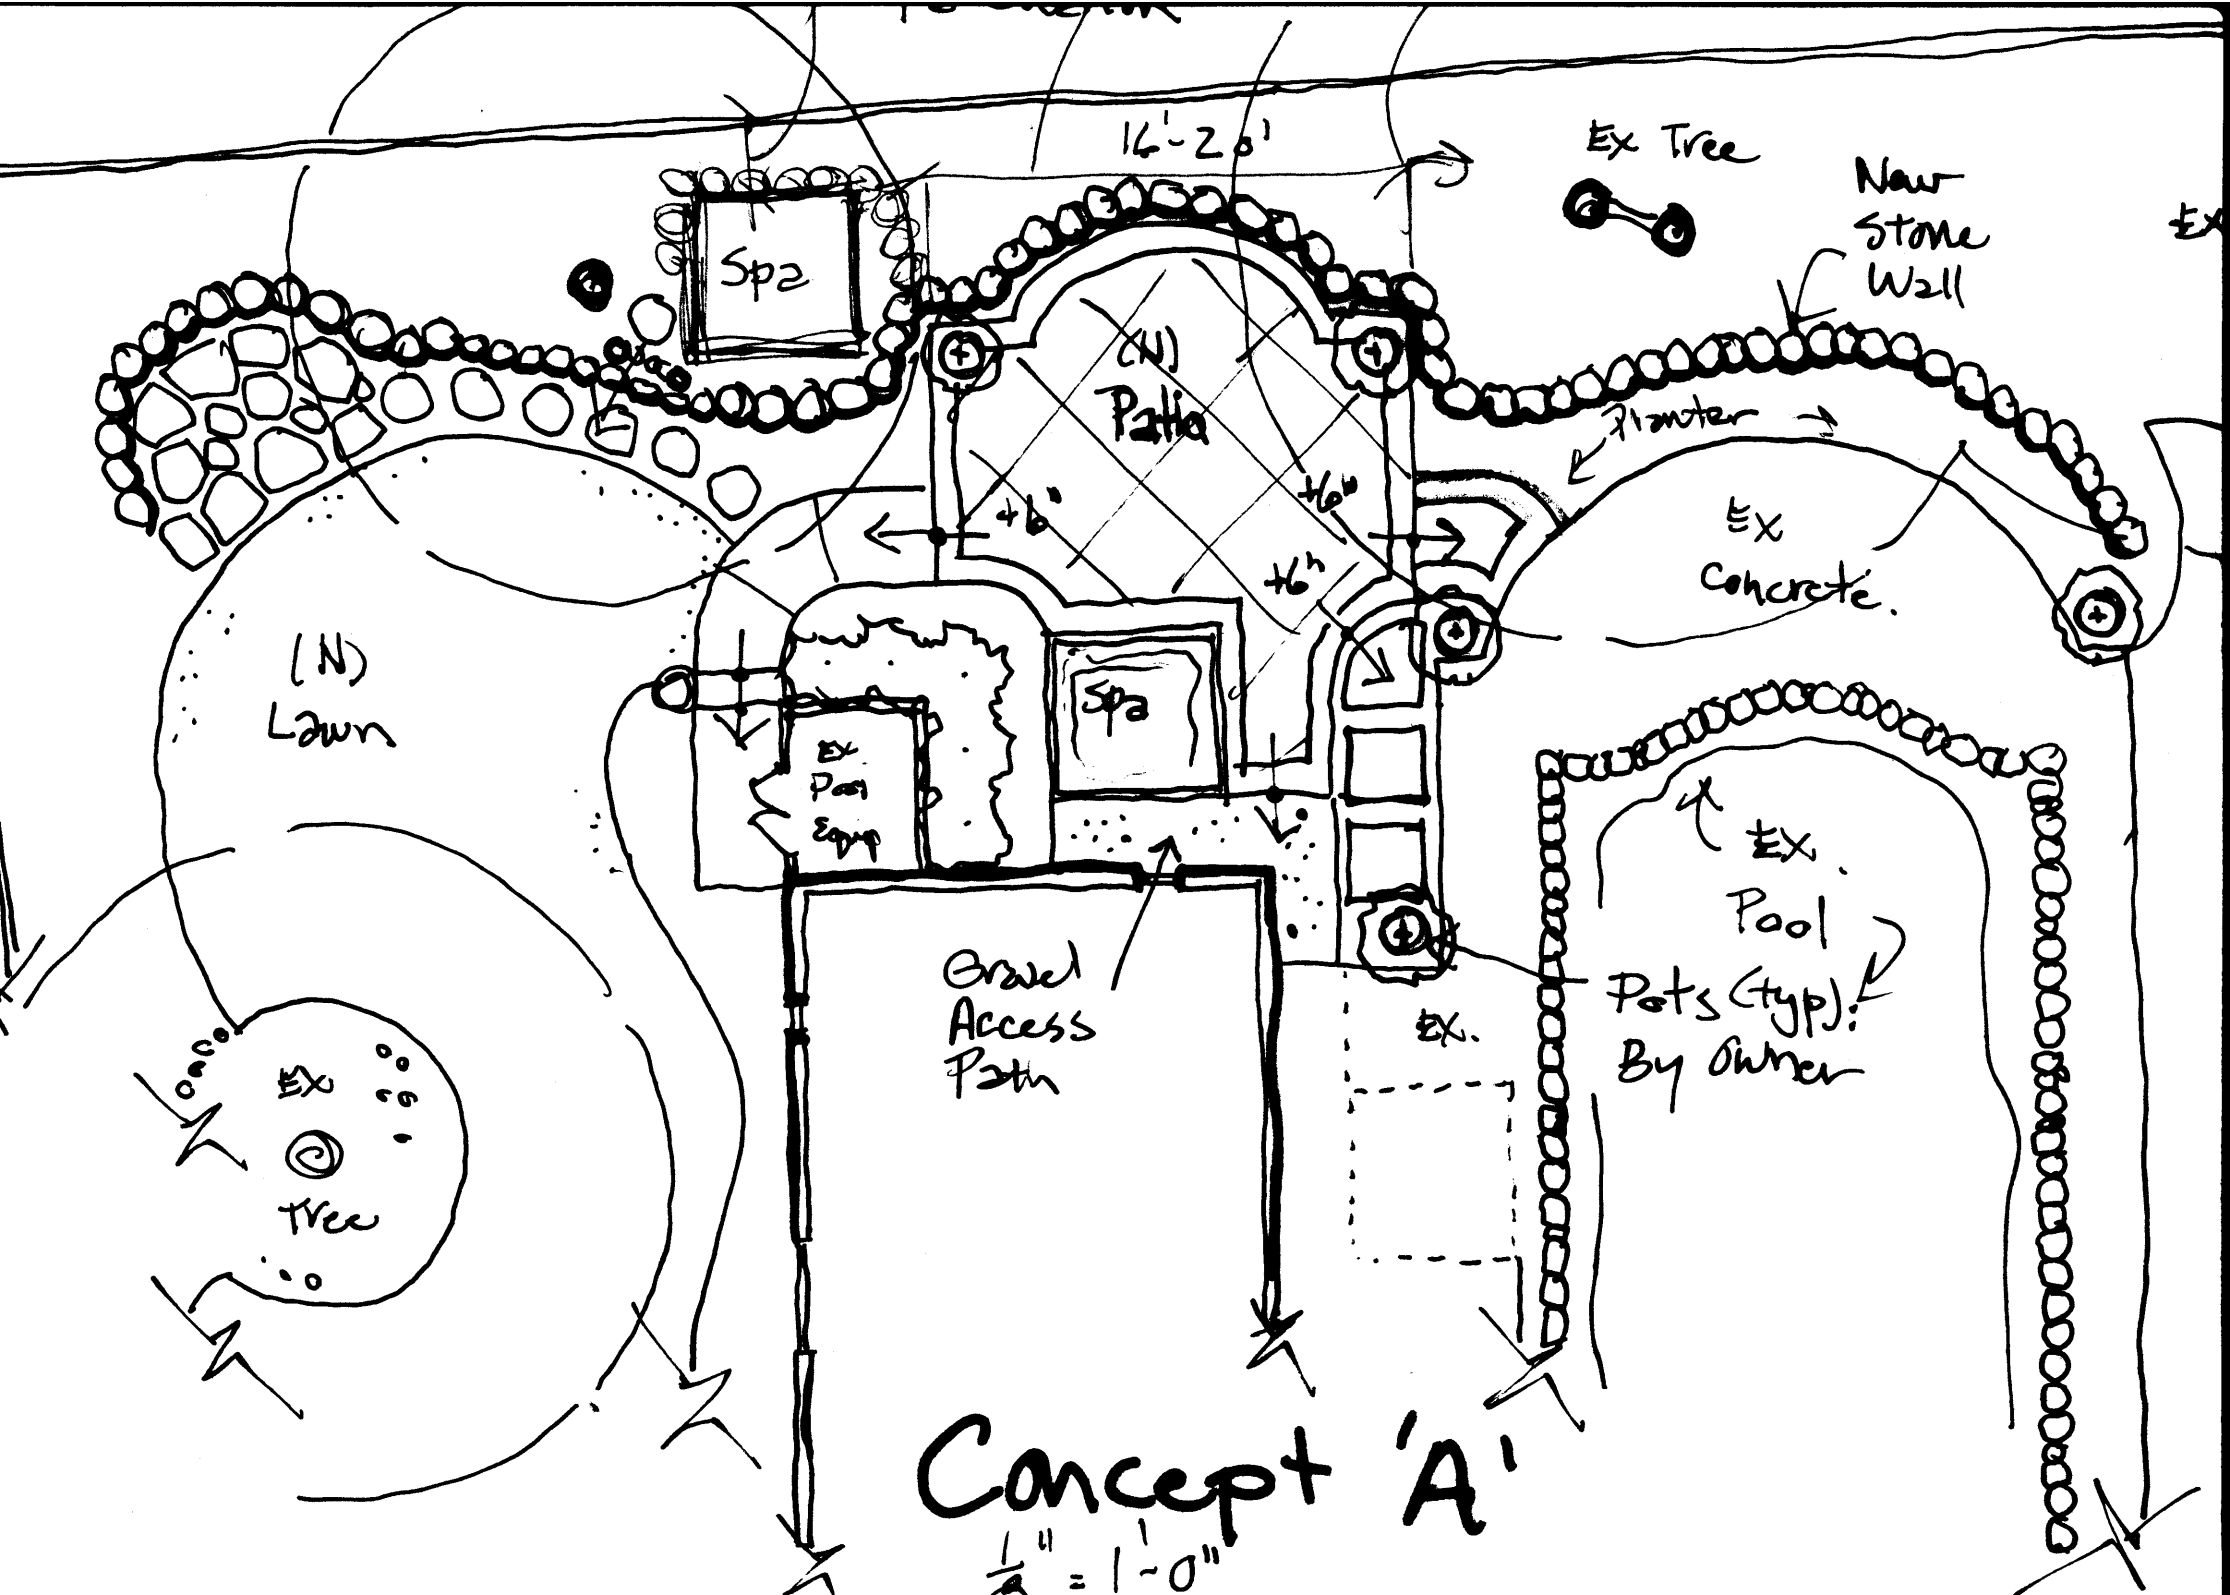 16'-20'
Ex Tree
New
Stone
Wall
Ex
Spa
(N)
Patio
Planter
+6"
+6"
+6"
Ex
Concrete.
(N)
Lawn
Spa
Ex
Pool
Equip
Ex.
Pool
Gravel
Access
Path
Pots (typ):
By Owner
Ex.
Ex
Tree
Concept 'A'
= 1'-0"